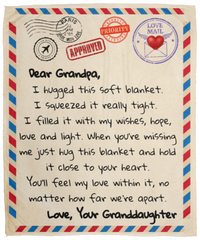 PARIS
APPROVED
PRIORITY
LOVE
MAIL
Dear Grandpa,
I hugged this soft blanket.
I squeezed it really tight.
I filled it with my wishes, hope,
love and light. When you're missing
me just hug this blanket and hold
it close to your heart.
You'll feel my love within it, no
matter how far we're apart.
Love, Your Granddaughter